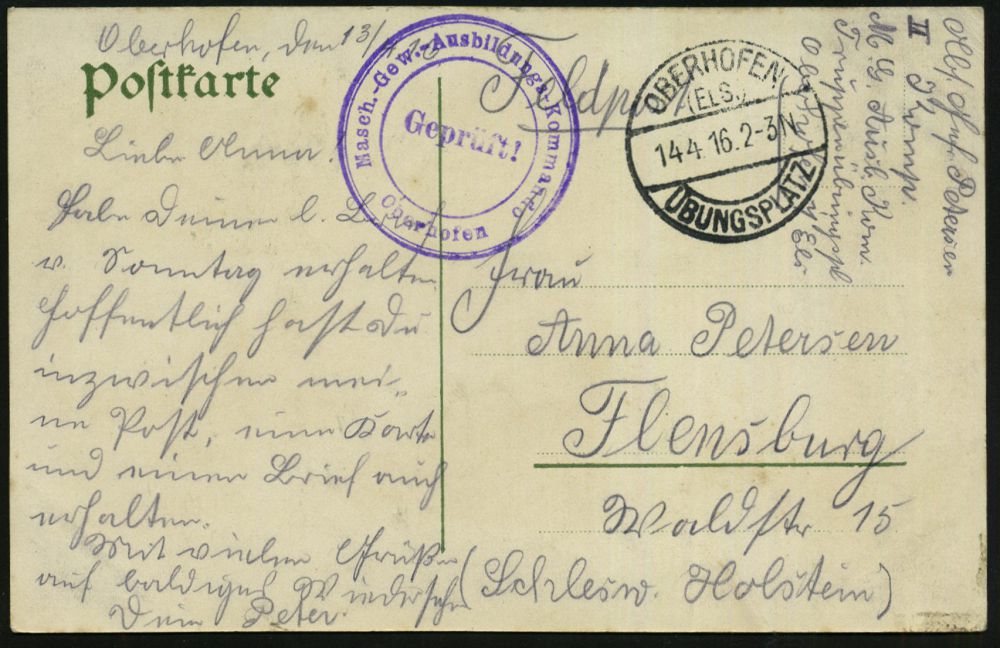 Oberhofen, den 13/4.16
Postkarte
Feldpost
Liebe Anna.
Habe Deinen l. Brief
v. Sonntag erhalten
hoffentlich hast Du
inzwischen mei-
ne Post, eine Karte
und einen Brief auch
erhalten.
Mit vielen Grüßen
auf baldiges Wiedersehn
Dein Peter.
Masch.-Gew.-Ausbildungs Kommando
Geprüft!
Oberhofen
OBERHOFEN
(ELS.)
14.4.16.2-3N
ÜBUNGSPLATZ
Petersen
II Komp.
M. G. Ausb. Kom.
Truppenübungspl
Oberhofen Els
Frau
Anna Petersen
Flensburg
Waldstr 15
(Schlesw. Holstein)